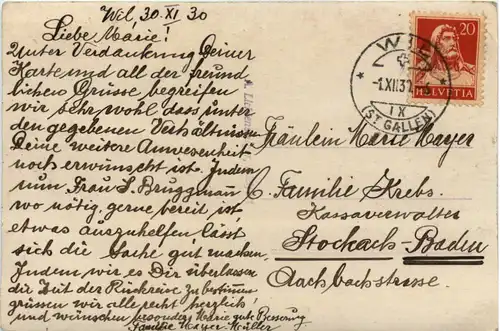 Wil, 30. XI. 30
Liebe Marie!
Unter Verdankung Deiner
Karte und all der freund
lichen Grüsse begreifen
wir sehr wohl dass unter
den gegebenen Verhältnissen
Deine weitere Anwesenheit
noch erwünscht ist. Indem
nun Frau S. Bruggmann
wo nötig, gerne bereit ist,
etwas auszuhelfen lässt
sich die Sache gut machen.
Indem wir es Dir überlassen
die Zeit der Rückreise zu bestimmen
grüssen wir alle recht herzlich!
und wünschen besonders Marie gute Besserung
Familie Mayer-Müller
20
HELVETIA
WIL
-1.XII.30
IX
(ST. GALLEN)
Fräulein Marie Mayer
C. Familie Krebs.
Kassaverwalter
Stockach-Baden
Aachbachstrasse.